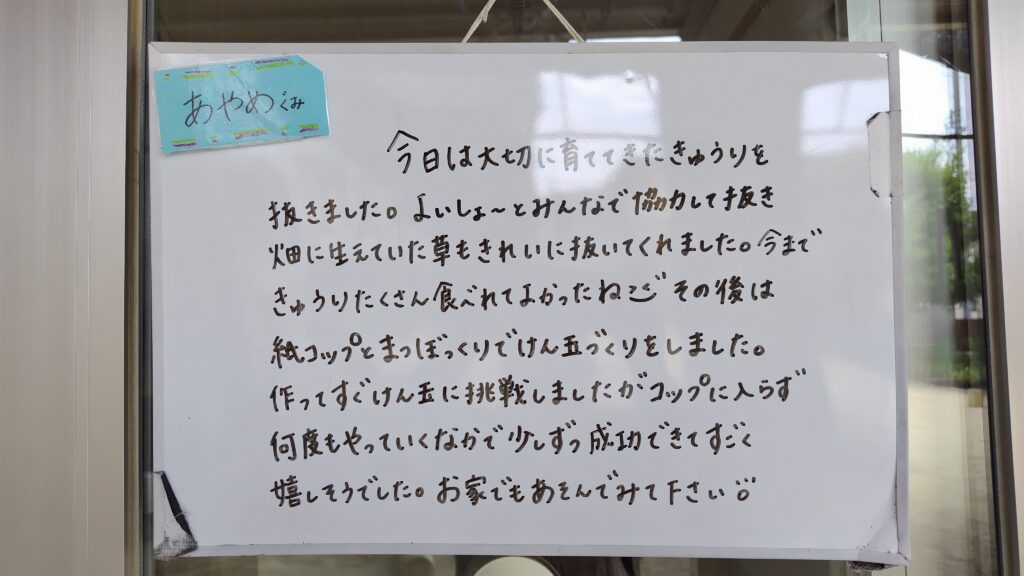 あやめぐみ
今日は大切に育ててきたきゅうりを
抜きました。よいしょ～とみんなで協力して抜き
畑に生えていた草もきれいに抜いてくれました。今まで
きゅうりたくさん食べれてよかったね その後は
紙コップとまつぼっくりでけん玉づくりをしました。
作ってすぐけん玉に挑戦しましたがコップに入らず
何度もやっていくなかで少しずつ成功できてすごく
嬉しそうでした。お家でもあそんでみて下さい